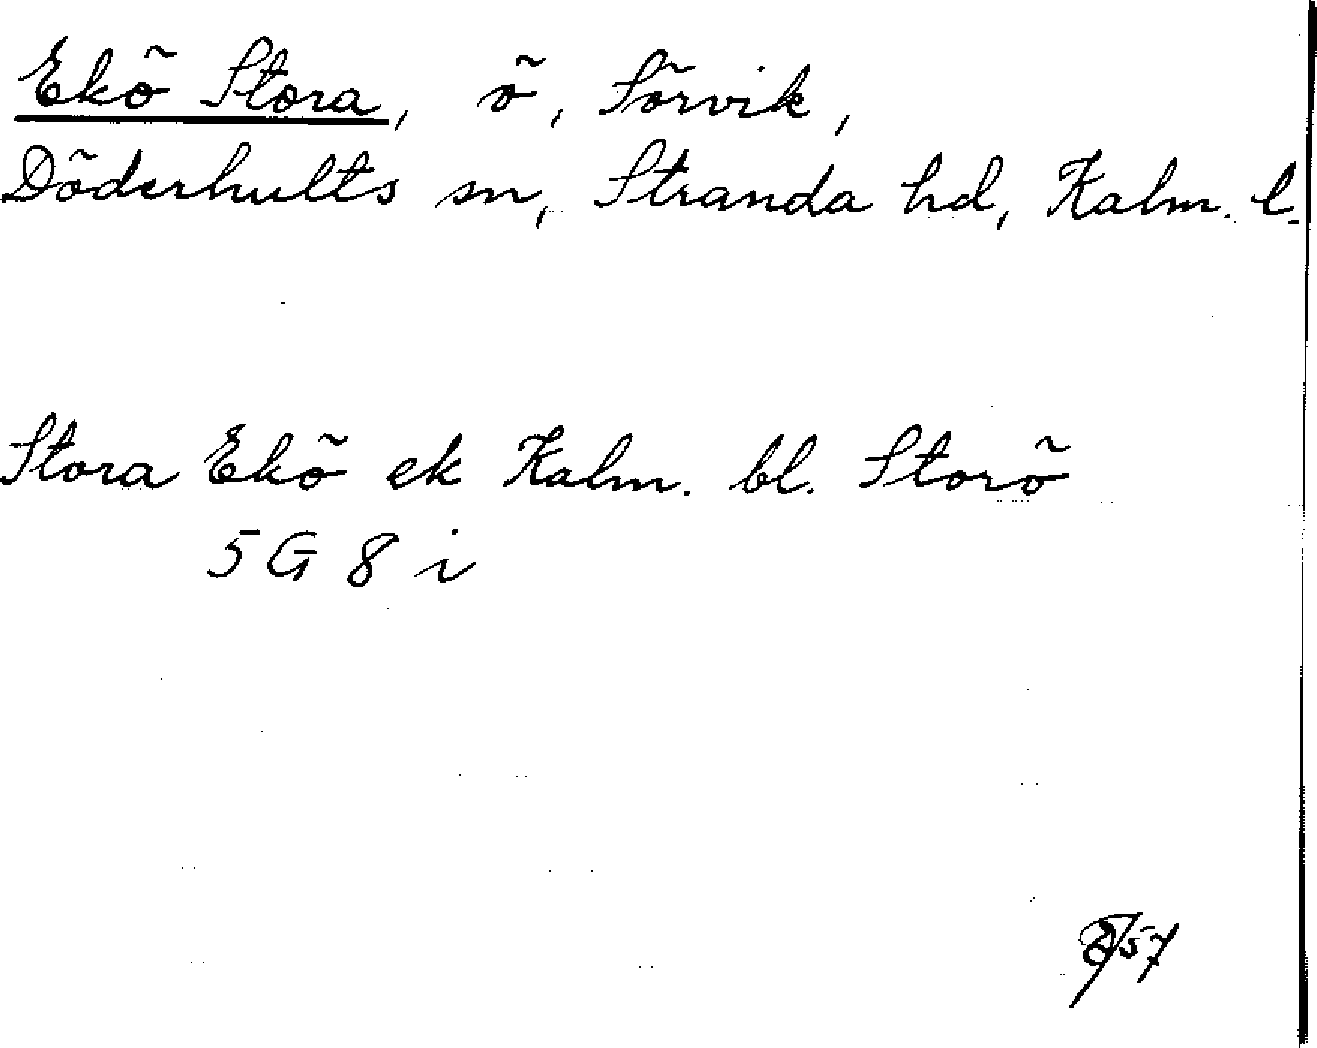 Ekö Stora, ö, Sörvik,
Döderhults sn, Stranda hd, Kalm. l.
Stora Ekö ek Kalm. bl. Storö
5 G 8 i